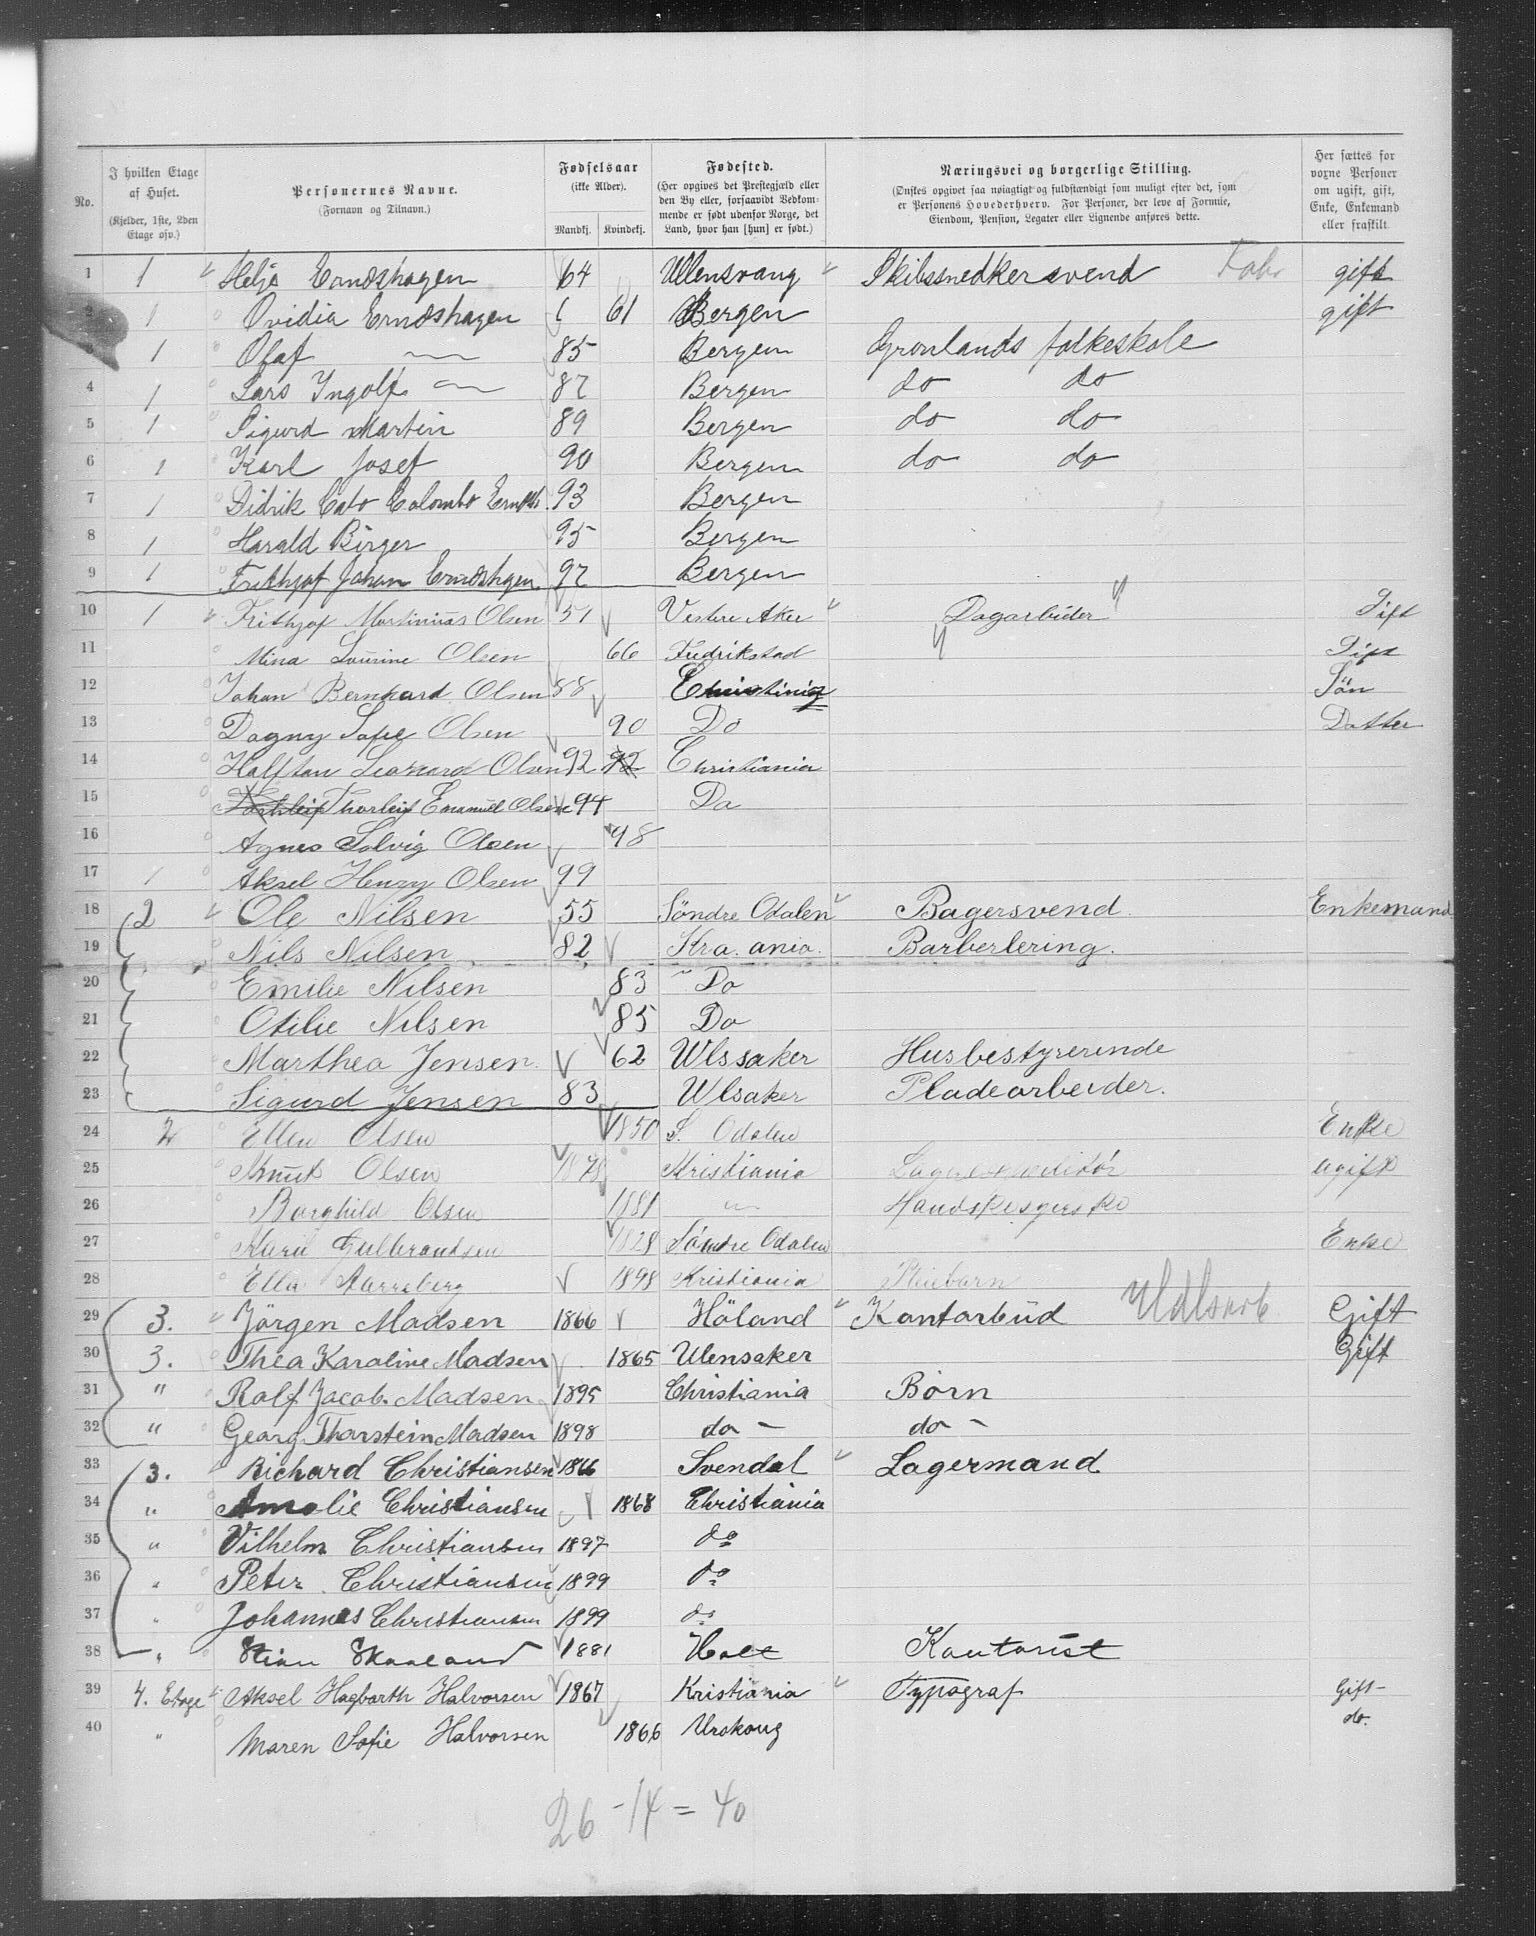 No. | I hvilken Etage af Huset. (Kjelder, 1ste, 2den Etage osv.) | Personernes Navne. (Fornavn og Tilnavn.) | Fødselsaar (ikke Alder). Mandkj. | Kvindekj. | Fødested. (Her opgives det Prestegjæld eller den By eller, forsaavidt Vedkommende er født udenfor Norge, det Land, hvor han [hun] er født.) | Næringsvei og borgerlige Stilling. (Ønskes opgivet saa nøiagtigt og fuldstændigt som muligt efter det, som er Personens Hovederhverv. For Personer, der leve af Formue, Eiendom, Pension, Legater eller Lignende anføres dette. | Her sættes for voxne Personer om ugift, gift, Enke, Enkemand eller fraskilt.
1 1 Helje Erndshagen 64 Ullensvang Skibssnedkersvend Fabr gift
2 1 Ovidia Erndshagen 61 Bergen gift
3 1 Olaf — 85 Bergen Grønlands folkeskole
4 1 Lars Ingolf — 87 Bergen do do
5 1 Sigurd Martin 89 Bergen do do
6 1 Karl Josef 90 Bergen do do
7 1 Didrik Cato Colombo Erndsh. 93 Bergen
8 1 Harald Birger 95 Bergen
9 1 Frithjof Johan Erndshgen 97 Bergen
10 1 Frithjof Martinius Olsen 51 Vestre Aker Dagarbeider Gift
11 Mina Lourine Olsen 66 Fredrikstad Gift
12 Johan Bernhard Olsen 88 Christinia Sön
13 Dagny Sofie Olsen 90 Do Datter
14 Halftan Leonard Olsen 92 92 Christiania
15 Thorleif Emanuel Olsen 94 Do
16 Agnes Solvig Olsen 98
17 1 Aksel Henry Olsen 99
18 2 Ole Nilsen 55 Söndre Odalen Bagersvend. Enkemand
19 Nils Nilsen 82 Kra.ania. Barberlering.
20 Emilie Nilsen 83 Do
21 Otilie Nilsen 85 Do
22 Marthea Jensen. 62 Ulssaker Husbestyrerinde
23 Sigurd Jensen 83 Ulsaker Pladearbeider.
24 2 Ellen Olsen 1850 S. Odalen Enke
25 Knut Olsen 1878 Kristiania Lagerexpeditör ugift
26 Borghild Olsen 1881 — Handskesyerske
27 Karii Gulbrandsen 1828 Söndre Odalen Enke
28 Ella 1898 Kristiania Pleiebarn
29 3. Jörgen Madsen 1866 Höland Kontorbud Gift
30 3. Thea Karoline Madsen 1865 Ulensaker Gift
31 " Rolf Jacob. Madsen 1895 Christiania Börn
32 " Georg Thorstein Madsen 1898 do - do -
33 3. Richard Christiansen 1866 Svendal Lagermand
34 " Amalie Christiansen 1868 Christiania
35 " Vilhelm Christiansen 1897 do
36 " Peter Christiansen 1899 do
37 " Johannes Christiansen 1899 do
38 " Stian Skaaland 1881 Holt Kontorist
39 4. Etage Aksel Hagbarth Halvorsen 1867 Kristiania Typograf Gift-
40 " Maren Sofie Halvorsen 1866 Urskoug do.
26 - 14 = 40